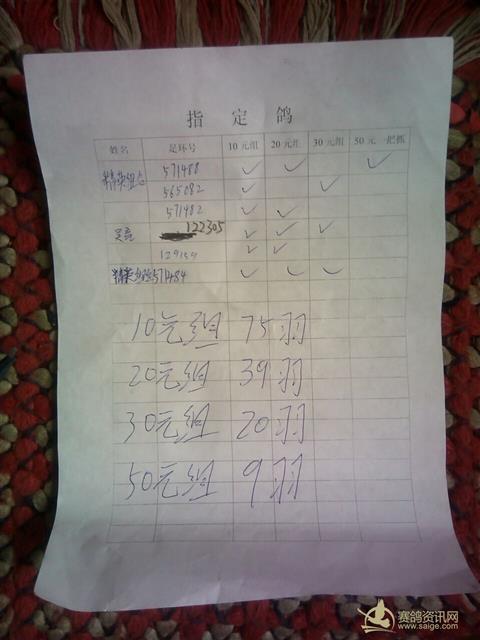 指定鸽
姓名 足环号 10元组 20元组 30元组 50元一把抓
精英组合 571488 ✓ ✓ ✓
565082 ✓ ✓
571482 ✓ ✓
122305 ✓ ✓ ✓
✓ ✓
571484 ✓ ✓ ✓
10元组 75羽
20元组 39羽
30元组 20羽
50元组 9羽
赛鸽资讯网
www.saige.com